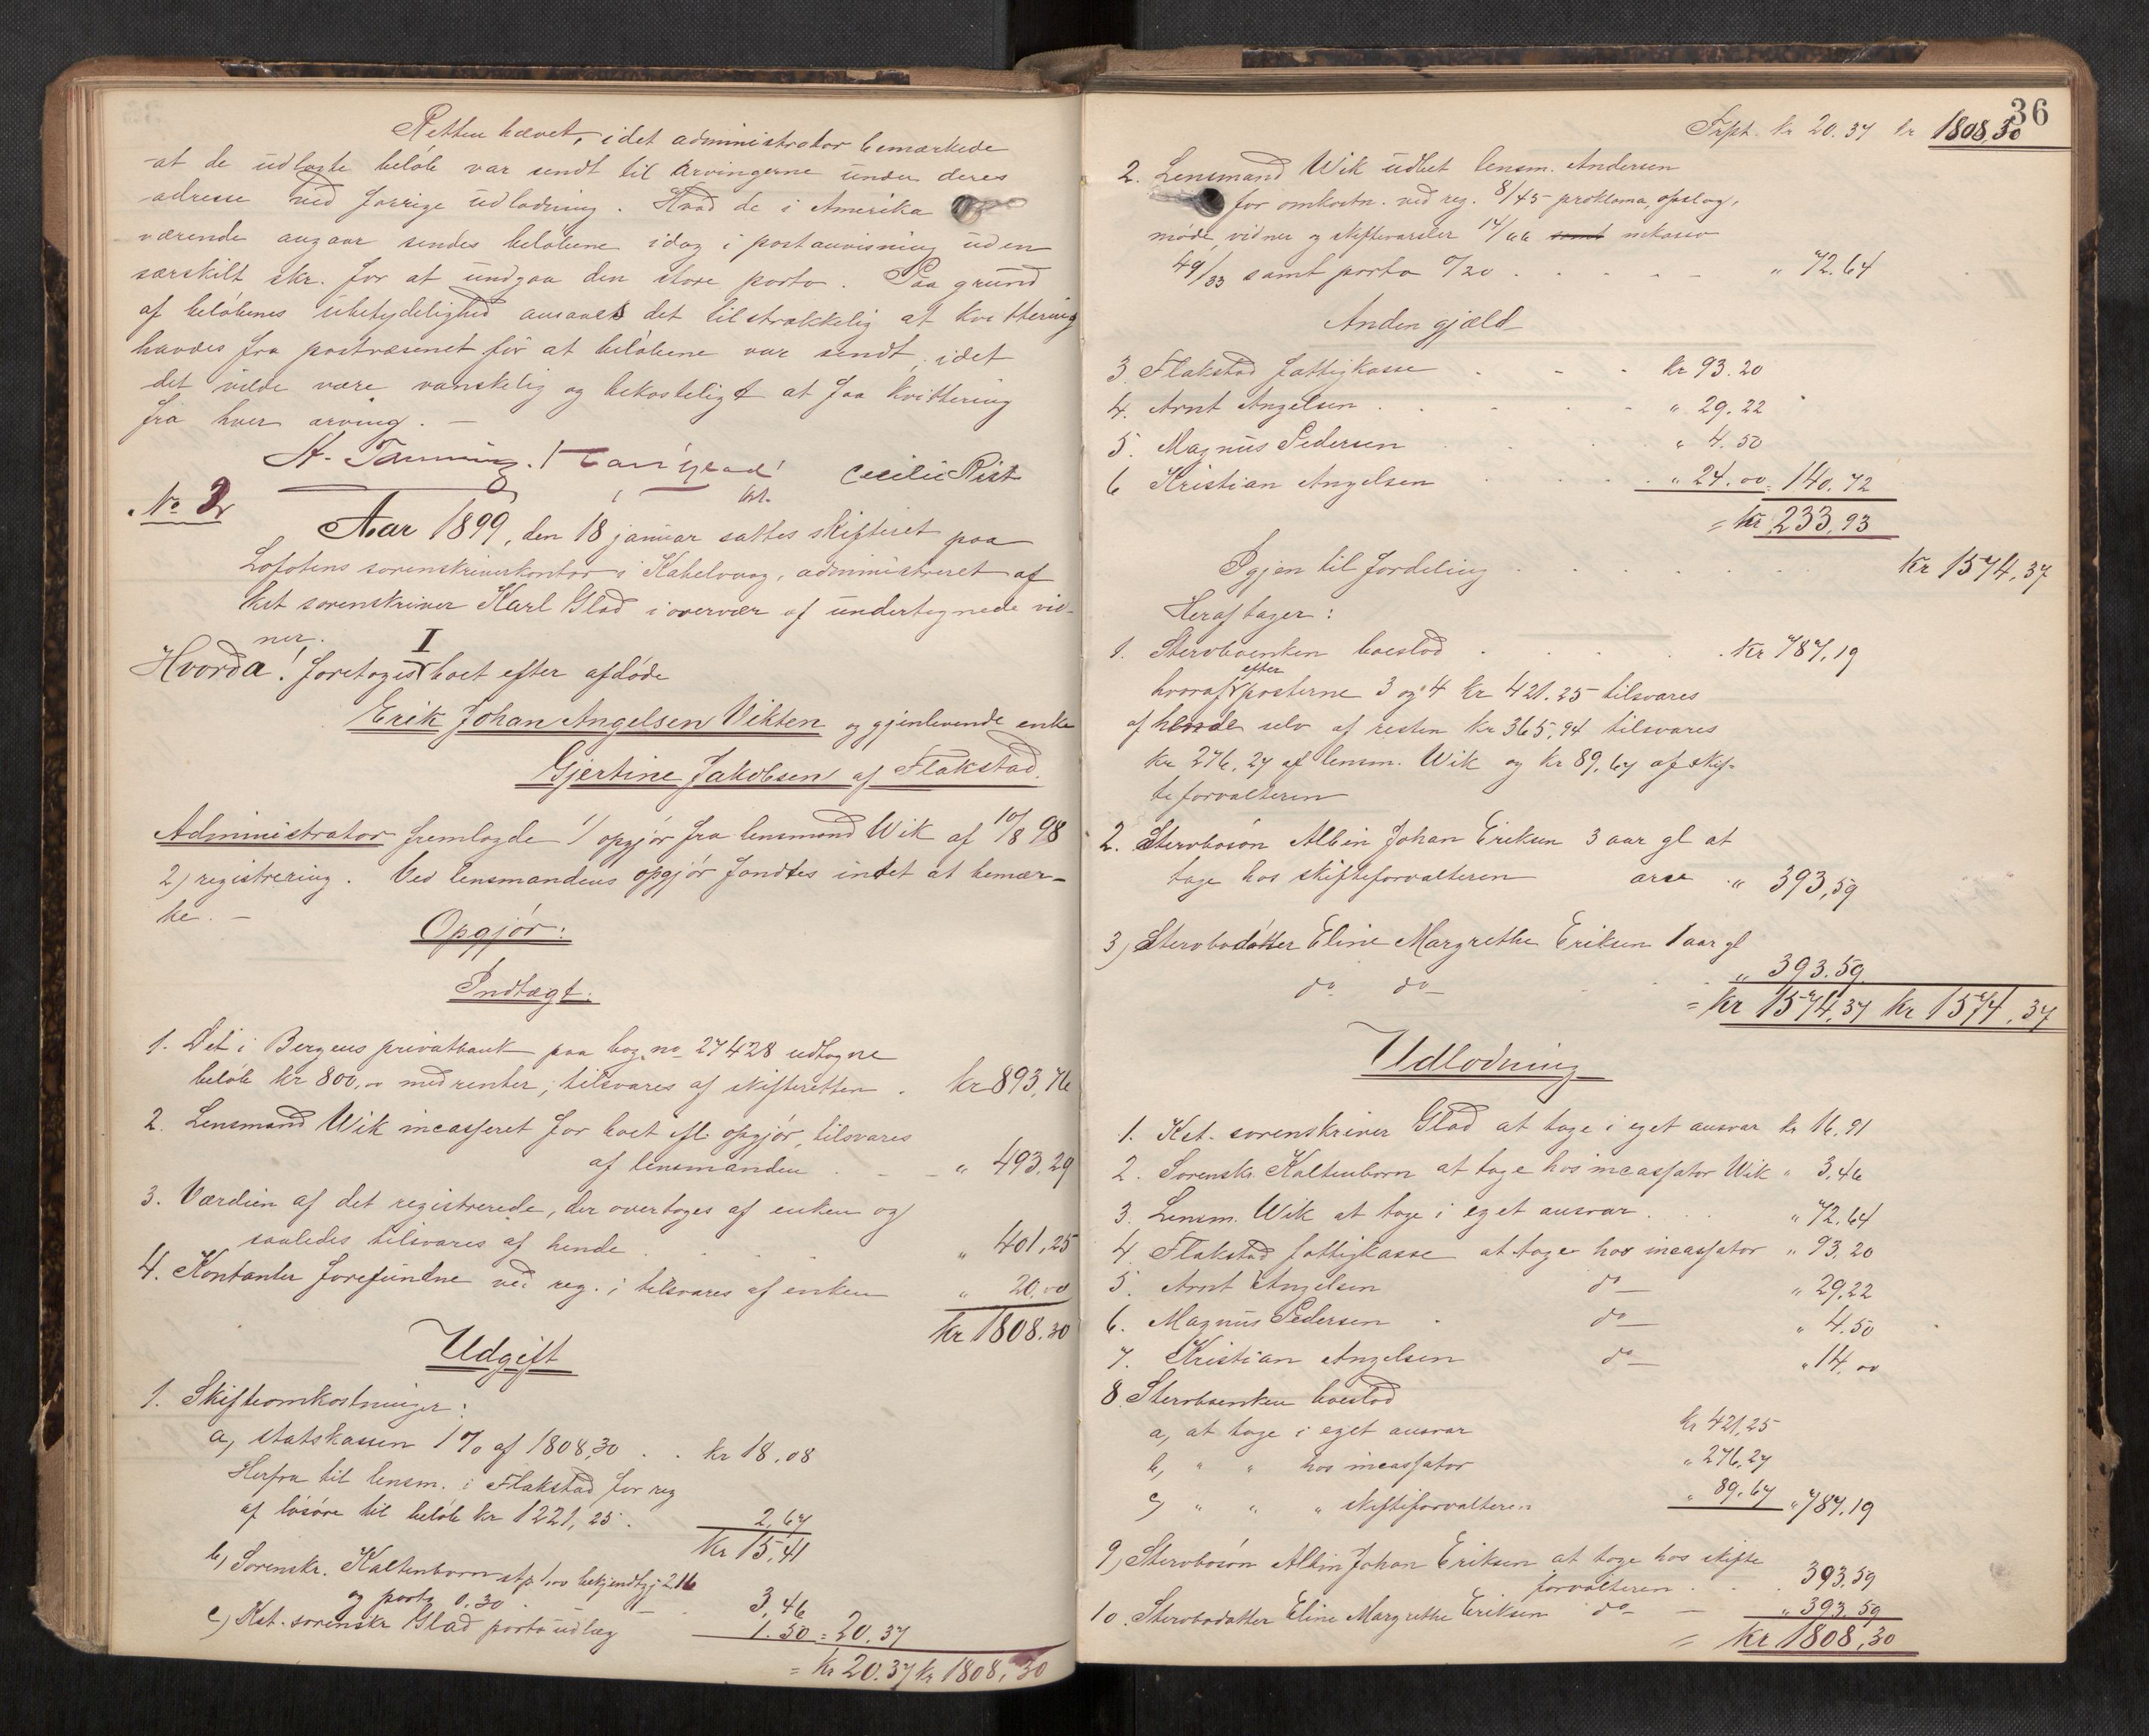 Retten hævet, idet administrator bemærkede
at de udlagte beløb var sendt til arvingerne under deres
adresse ved forrige udlodning. Hvad de i Amerika
værende angaar sendes beløbene idag i postanvisning uden
særskilt skr. for at undgaa den store porto. Paa grund
af beløbenes ubetydelighed ansaaes det tilstrækkelig at kvittering
havdes fra postvæsenet for at beløbene var sendt, idet
det vilde være vanskelig og bekosteligt at faa kvittering
fra hver arving. —
Karl Glad Cecilie Rist
kst.
No 2
Aar 1899, den 18 januar sattes skifteret paa
Lofotens sorenskriverkontor i Kabelvaag, administreret af
kst sorenskriver Karl Glad i overvær af undertegnede vid-
ner.
Hvorda! foretoges I boet efter afdøde
Erik Johan Angelsen Vikten og gjenlevende enke
Gjertine Jakobsen af Flakstad.
Administrator fremlagde 1/ opgjør fra lensmand Wik af 10/8 98
2) registrering. Ved lensmandens opgjør fandtes intet at bemær-
ke. —
Opgjør:
Indtægt:
1. Det i Bergens privatbank paa bog no 27428 udtagne
beløb kr 800,00 med renter, tilsvares af skifteretten . kr 893,76
2. Lensmand Wik incasseret for boet efl. opgjør, tilsvares
af lensmanden . — " 493,29
3. Værdien af det registrerede, der overtoges af enken og
saaledes tilsvares af hende . . . " 401,25
4. Kontanter forefundne ved reg. ; tilsvares af enken " 20,00
kr 1808.30
Udgift
1. Skifteomkostninger:
a, statskassen 1% af 1808,30 . . kr 18,08
Herfra til lensm. i Flakstad for reg
af løsøre til beløb kr 1221,25 . 2,67
kr 15,41
b, Sorenskr. Kaltenborn stp 1,00 bekjendtgj 2.16
og porto 0.30 . — 3,46
c, Kst. sorenskr Glad porto udlæg 1.50 = 20,37
= kr 20.37 kr 1808,30
36
Frpt. kr 20.37 kr 1808,30
2. Lensmand Wik udbet lensm. Andersen
for omkostn. ved reg. 8/45 proklama, opslag,
møde, vidner og skiftevarsler 14/66 samt inkasso
49/33 samt porto 0/20 . . . . — " 72.64
Anden gjæld
3. Flakstad fattigkasse . - - kr 93.20
4. Arnt Angelsen . . - - " 29.22
5. Magnus Pedersen . . " 4.50
6 Kristian Angelsen . . . " 24.00 = 140.72
= kr 233,93
Igjen til fordeling . . . . . kr 1574,37
Heraf tager:
1. Sterboenken boeslod . . . . kr 787,19
hvoraf efter posterne 3 og 4 kr 421.25 tilsvares
af hende selv af resten kr 365,94 tilsvares
kr 276,27 af lensm. Wik og kr 89,67 af skif-
teforvalteren
2. Stervbosøn Albin Johan Eriksen 3 aar gl at
tage hos skifteforvalteren arv " 393,59
3) Stervbodatter Eline Margrethe Eriksen 1 aar gl
do do — " 393.59
= kr 1574,37 kr 1574,37
Udlodning
1. Kst. sorenskriver Glad at tage i eget ansvar kr 16,91
2. Sorenskr. Kaltenborn at tage hos incassator Wik " 3,46
3. Lensm. Wik at tage i eget ansvar . . . " 72,64
4. Flakstad fattigkasse at tage hos incassator " 93,20
5. Arnt Angelsen do — " 29,22
6. Magnus Pedersen . do — " 4.50
7. Kristian Angelsen do — " 14.00
8. Stervboenken boeslod
a, at tage i eget ansvar kr 421,25
b, " " hos incassator " 276,27
c, " " " skifteforvalteren " 89.67 " 787,19
9, Stervbosøn Albin Johan Eriksen at tage hos skifte
forvalteren . . . 393,59
10. Stervbodatter Eline Margrethe Eriksen do — " 393,59
= kr 1808,30